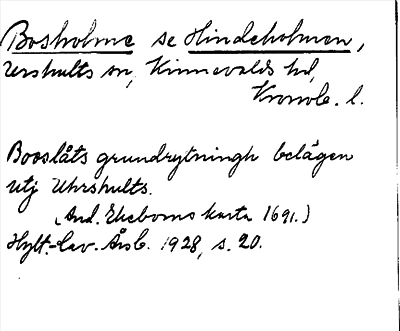 Bosholme se Hindeholmen,
Urshults sn, Kinnevalds hd,
Kronob. l.
Booslåts grundrytningh belägen
utj Uhrshults.
(And. Ekeboms karta 1691.)
Hylt.-Cav. Årsb. 1928, s. 20.